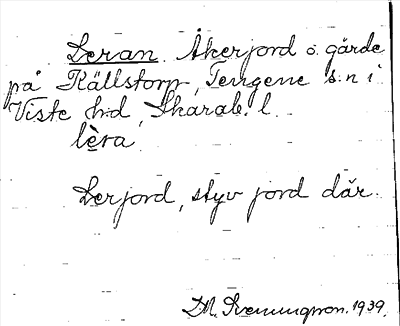 Leran. Åkerjord o. gärde
på Källstorp, Tengene s:n i
Viste h:d, Skarab. l.
lèra
Lerjord, styv jord där.
M. Svenungson. 1939.